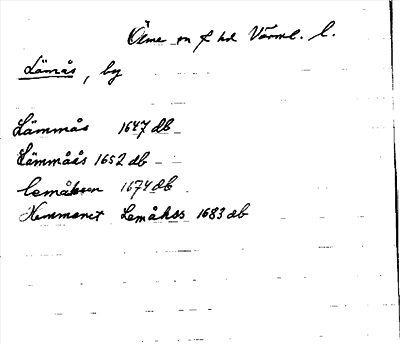 Ölme sn o hd Värml. l.
Lämås, by
Lämmås 1647 db
Lämmåås 1652 db
Lemåksen 1674 db
Hemmanet Lemåkss 1683 db